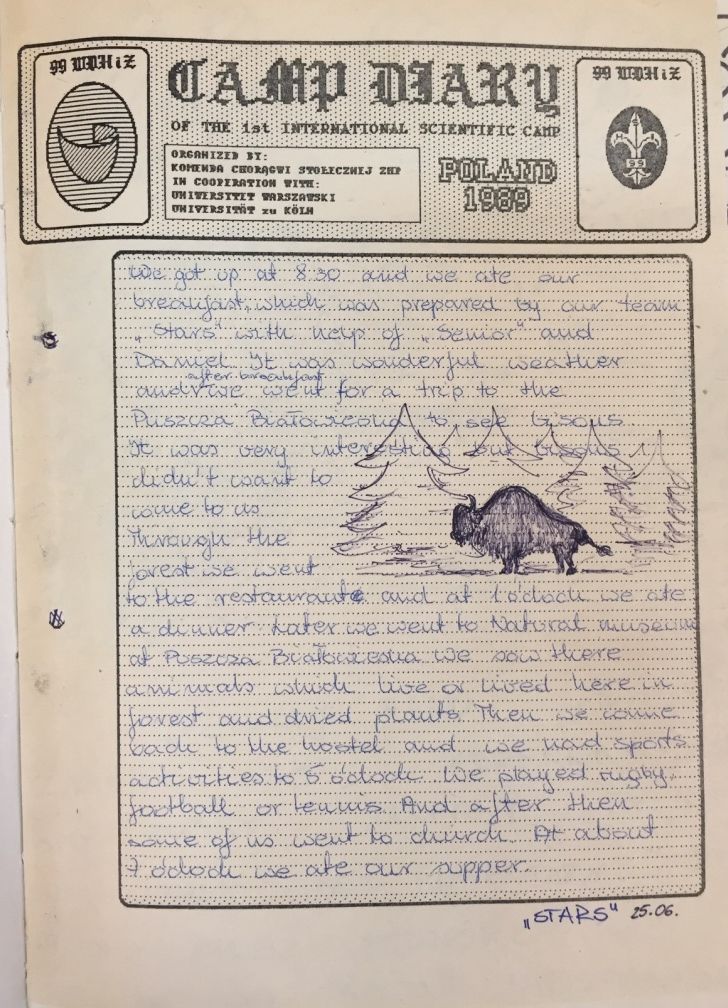 99 WDHiZ
CAMP DIARY
OF THE 1st INTERNATIONAL SCIENTIFIC CAMP
ORGANIZED BY:
KOMENDA CHORĄGWI STOŁECZNEJ ZHP
IN COOPERATION WITH:
UNIWERSITET WARSZAWSKI
UNIVERSITÄT zu KÖLN
POLAND
1989
99 WDHiZ
99
We got up at 8 30 and we ate our
breakfast, which was prepared by our team
„Stars" with help of „Senior" and
Daniel. It was wonderful weather
after breakfast
and we went for a trip to the
Puszcza Białowieska to see bisons.
It was very interesting but bisons
didn't want to
come to us
Through the
forest we went
to the restaurante and at 1 o'clock we ate
a dinner. Later we went to Natural museum
at Puszcza Białowieska we saw there
animals which live or lived here in
forest and dried plants. Then we came
back to the hostel and we had sports
activities to 5 o'clock. We played rugby,
football or tennis. And after then
some of us went to church. At about
7 o'clock we ate our supper.
„STARS" 25.06.